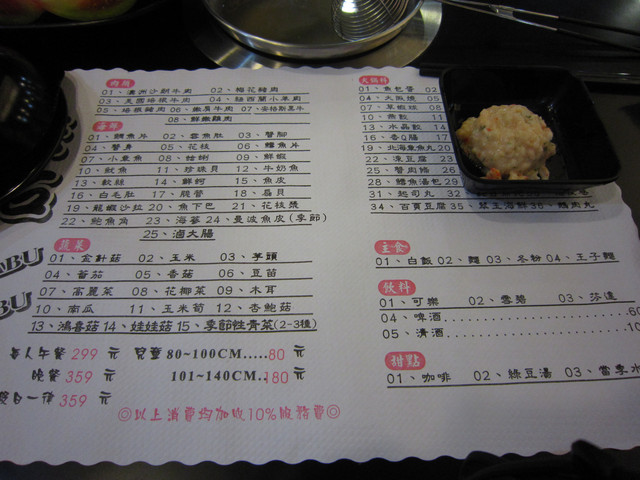 肉類
01、澳洲沙朗牛肉 02、梅花豬肉
03、美國培根牛肉 04、紐西蘭小羊肉
05、培根豬肉 06、嫩肩牛肉 07、安格斯黑牛
08、鮮嫩雞肉
海鮮
01、鯛魚片 02、雲魚肚 03、蟹腳
04、蟹身 05、花枝 06、鱈魚片
07、小章魚 08、蛤蜊 09、鮮蝦
10、魷魚 11、珍珠貝 12、牛奶魚
13、軟絲 14、鮮蚵 15、魚皮
16、白毛肚 17、殼管 18、扇貝
19、龍蝦沙拉 20、魚下巴 21、花枝漿
22、鮑魚角 23、海蔘 24、曼波魚皮(季節)
25、滷大腸
蔬菜
01、金針菇 02、玉米 03、芋頭
04、蕃茄 05、香菇 06、豆苗
07、高麗菜 08、花椰菜 09、木耳
10、南瓜 11、玉米筍 12、杏鮑菇
13、鴻喜菇 14、娃娃菇 15、季節性青菜(2-3種)
ABU
BU
每人午餐 299 元 兒童 80~100CM.....80 元
晚餐 359 元 101~140CM..180 元
假日一律 359 元
◎以上消費均加收10%服務費◎
火鍋料
01、魚包蛋 02
04、大阪燒 05
07、草蝦球 08
10、燕餃 11
13、水晶餃 14
16、香Q腸 17
19、北海章魚丸 20
22、凍豆腐 23
25、蟹肉棒 26
28、鱈魚湯包 29
31、起司丸 32
34、百頁豆腐 35、翠玉海鮮 36、雞肉丸
主食
01、白飯 02、麵 03、冬粉 04、王子麵
飲料
01、可樂 02、雪碧 03、芬達
04、啤酒..........60
05、清酒..........10
甜點
01、咖啡 02、綠豆湯 03、當季水